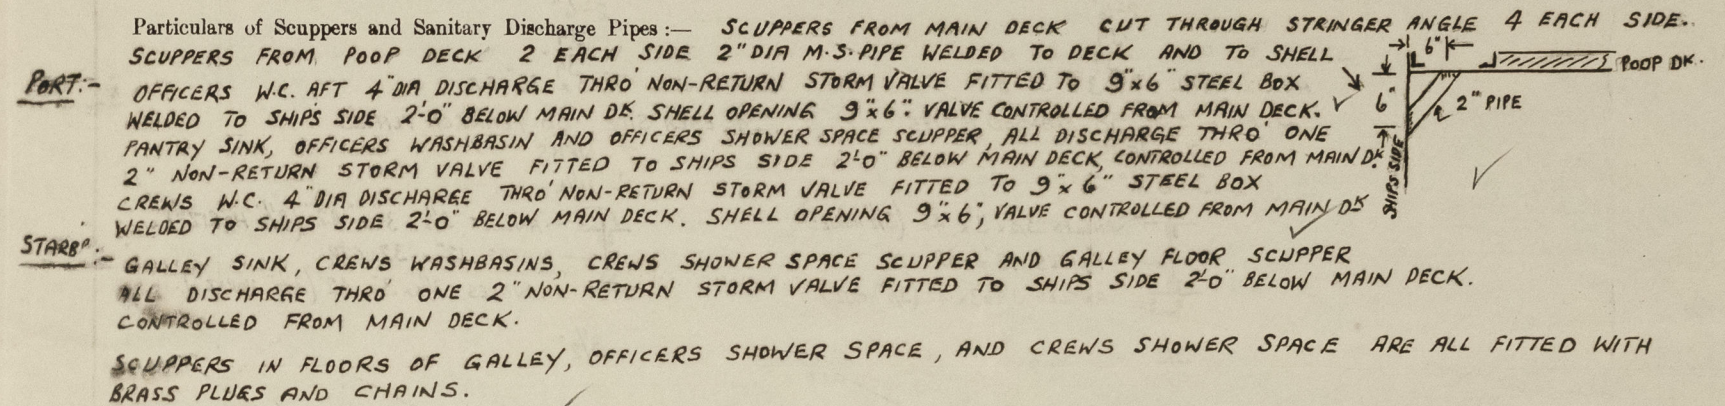 Particulars of Scuppers and Sanitary Discharge Pipes :— SCUPPERS FROM MAIN DECK CUT THROUGH STRINGER ANGLE 4 EACH SIDE.
SCUPPERS FROM POOP DECK 2 EACH SIDE 2" DIA M.S. PIPE WELDED TO DECK AND TO SHELL
6"
POOP DK.
6"
2" PIPE
SHIPS SIDE
PORT:- OFFICERS W.C. AFT 4" DIA DISCHARGE THRO' NON-RETURN STORM VALVE FITTED TO 9"x6" STEEL BOX
WELDED TO SHIPS SIDE 2'-0" BELOW MAIN DK. SHELL OPENING 9"x6". VALVE CONTROLLED FROM MAIN DECK.
PANTRY SINK, OFFICERS WASHBASIN AND OFFICERS SHOWER SPACE SCUPPER, ALL DISCHARGE THRO' ONE
2" NON-RETURN STORM VALVE FITTED TO SHIPS SIDE 2'-0" BELOW MAIN DECK, CONTROLLED FROM MAIN DK.
CREWS W.C. 4" DIA DISCHARGE THRO' NON-RETURN STORM VALVE FITTED TO 9"x6" STEEL BOX
WELDED TO SHIPS SIDE 2'-0" BELOW MAIN DECK. SHELL OPENING 9"x6", VALVE CONTROLLED FROM MAIN DK
STARBD:- GALLEY SINK, CREWS WASHBASINS, CREWS SHOWER SPACE SCUPPER AND GALLEY FLOOR SCUPPER
ALL DISCHARGE THRO' ONE 2" NON-RETURN STORM VALVE FITTED TO SHIPS SIDE 2'-0" BELOW MAIN DECK.
CONTROLLED FROM MAIN DECK.
SCUPPERS IN FLOORS OF GALLEY, OFFICERS SHOWER SPACE, AND CREWS SHOWER SPACE ARE ALL FITTED WITH
BRASS PLUGS AND CHAINS.